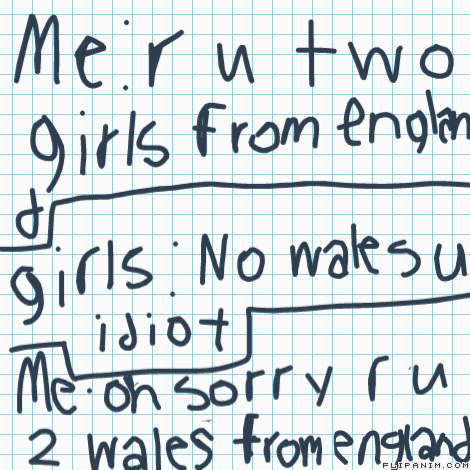 Me: r u two
girls from englan
d
girls: No wales u
idiot
Me: oh sorry r u
2 wales from england
FLIPANIM.COM